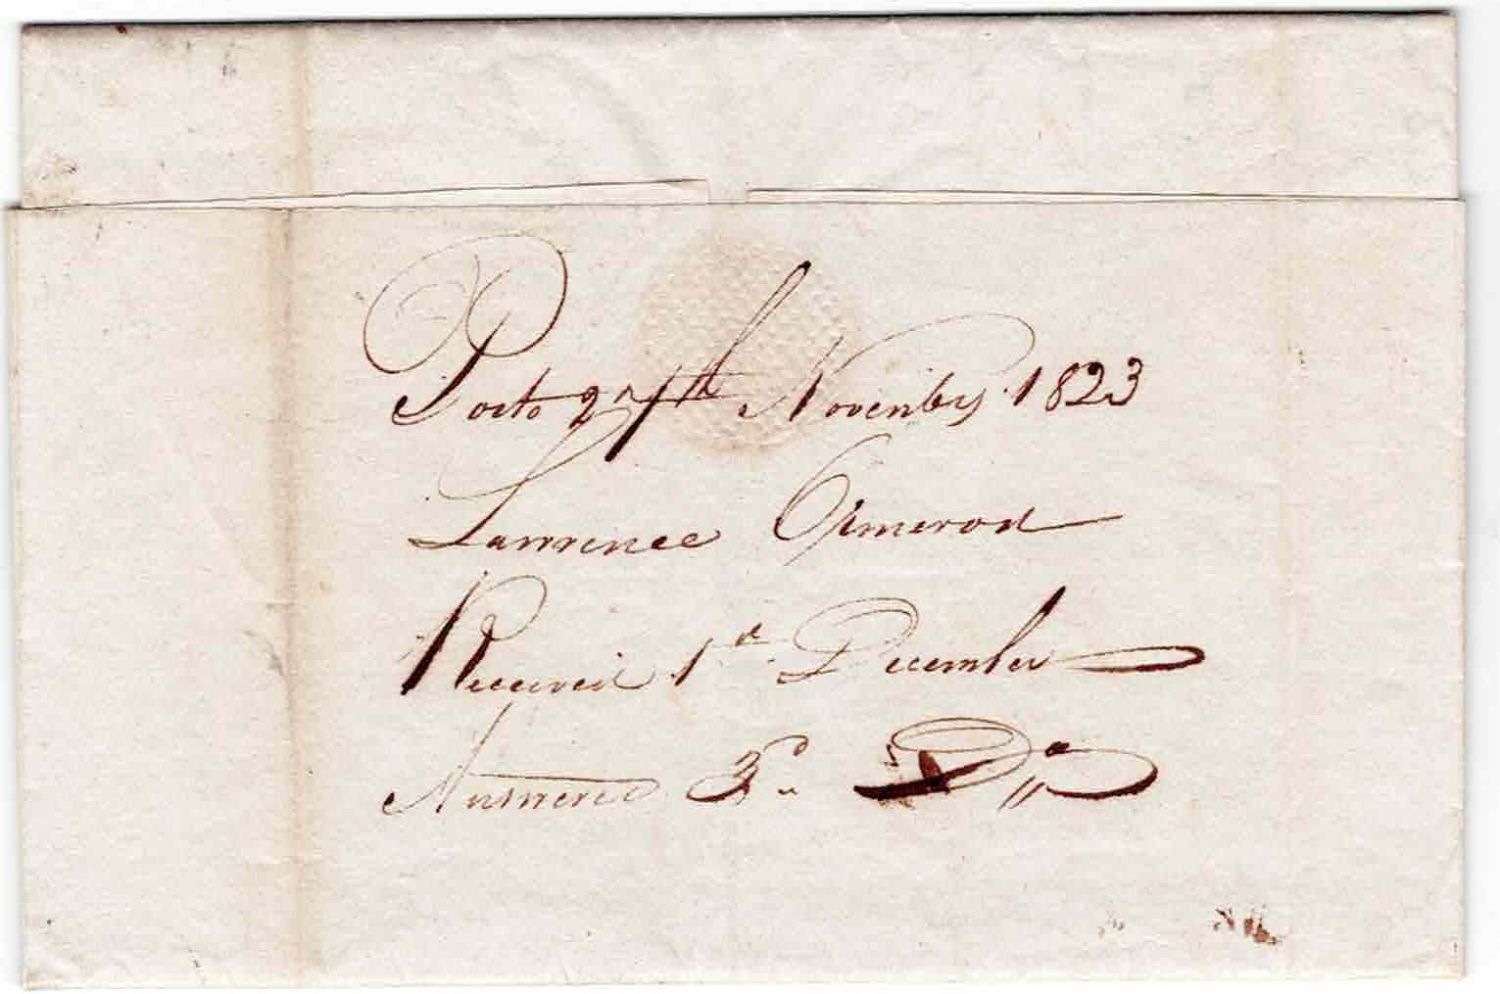 Porto 27th Novemby 1823
Lawrence Ormerod
Received 1d December
Answered 3d Do